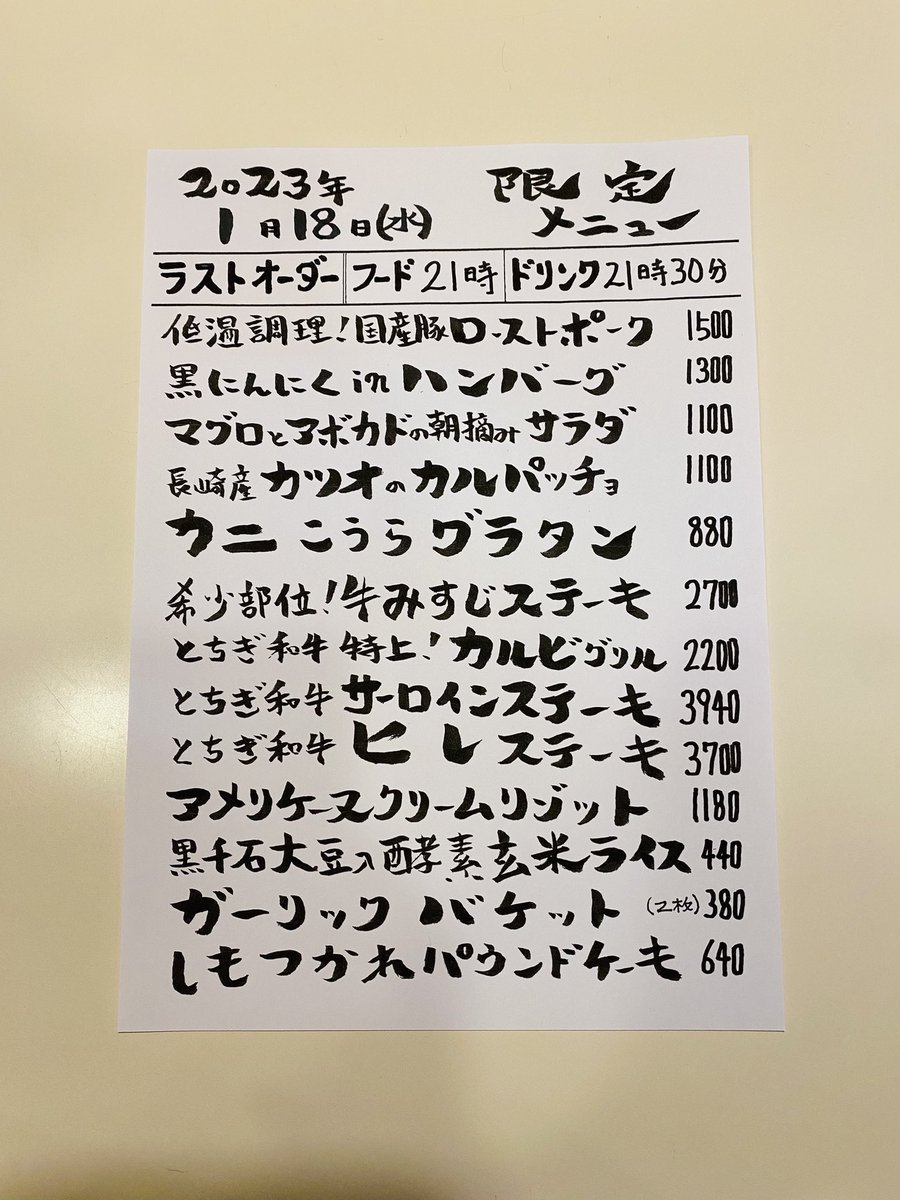 2023年 限定
1月18日(水) メニュー
ラストオーダー フード21時 ドリンク21時30分
低温調理!国産豚ローストポーク 1500
黒にんにくinハンバーグ 1300
マグロとアボカドの朝摘みサラダ 1100
長崎産カツオのカルパッチョ 1100
ウニこうらグラタン 880
希少部位!牛みすじステーキ 2700
とちぎ和牛特上!カルビグリル 2200
とちぎ和牛サーロインステーキ 3940
とちぎ和牛ヒレステーキ 3700
アメリケーヌクリームリゾット 1180
黒千石大豆入酵素玄米ライス 440
ガーリックバケット (2枚) 380
しもつかれパウンドケーキ 640